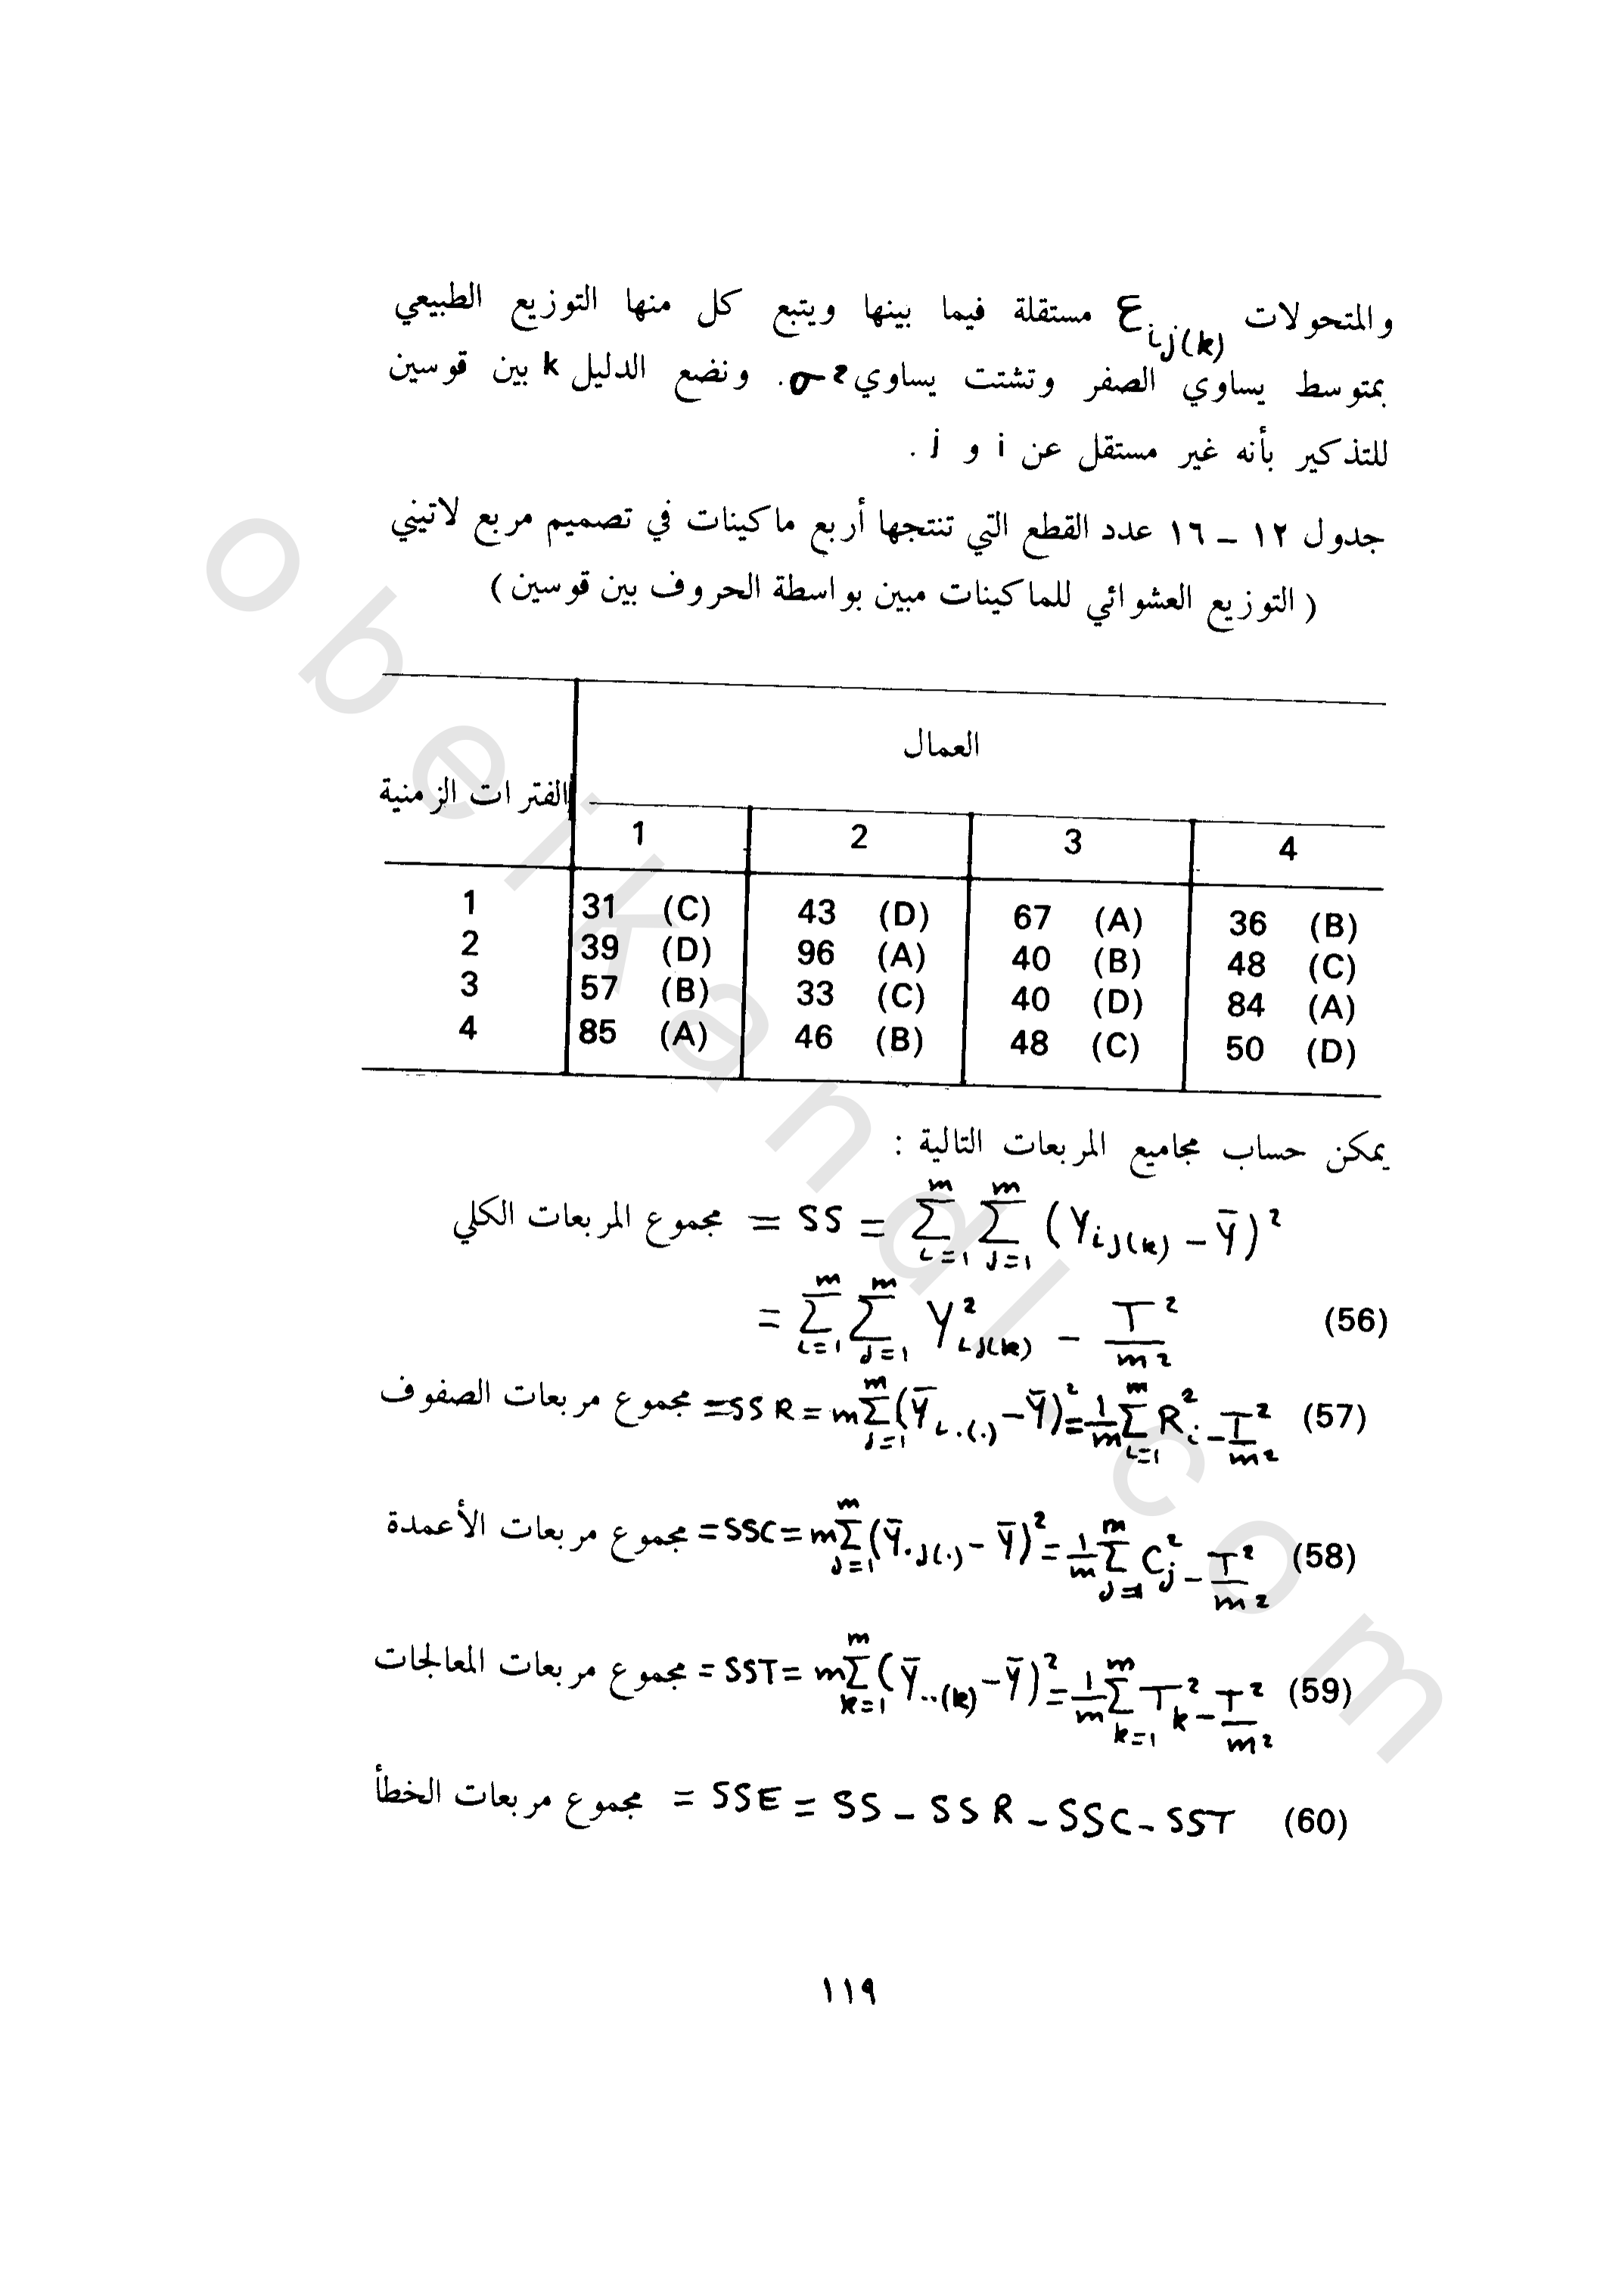 والمتحولات ε i j(k) مستقلة فيما بينها ويتبع كل منها التوزيع الطبيعي
بمتوسط يساوي الصفر وتشتت يساوي σ². ونضع الدليل k بين قوسين
للتذكير بأنه غير مستقل عن i و j .
جدول ١٢ – ١٦ عدد القطع التي تنتجها أربع ماكينات في تصميم مربع لاتيني
( التوزيع العشوائي للماكينات مبين بواسطة الحروف بين قوسين )
العمال
الفترات الزمنية
1 2 3 4
1 31 (C) 43 (D) 67 (A) 36 (B)
2 39 (D) 96 (A) 40 (B) 48 (C)
3 57 (B) 33 (C) 40 (D) 84 (A)
4 85 (A) 46 (B) 48 (C) 50 (D)
يمكن حساب مجاميع المربعات التالية :
مجموع المربعات الكلي = SS = Σ_{i=1}^{m} Σ_{j=1}^{m} (Y_{ij(k)} – Ȳ)²
= Σ_{i=1}^{m} Σ_{j=1}^{m} Y²_{ij(k)} – T²/m² (56)
مجموع مربعات الصفوف = SSR = m Σ_{j=1}^{m} (Ȳ_{i.(.)} – Ȳ)² = 1/m Σ_{i=1}^{m} R²_i – T²/m² (57)
مجموع مربعات الأعمدة = SSC = m Σ_{j=1}^{m} (Ȳ_{.j(.)} – Ȳ)² = 1/m Σ_{j=1}^{m} C²_j – T²/m² (58)
مجموع مربعات المعالجات = SST = m Σ_{k=1}^{m} (Ȳ_{..(k)} – Ȳ)² = 1/m Σ_{k=1}^{m} T²_k – T²/m² (59)
مجموع مربعات الخطأ = SSE = SS – SSR – SSC – SST (60)
١١٩
obeikandl.com